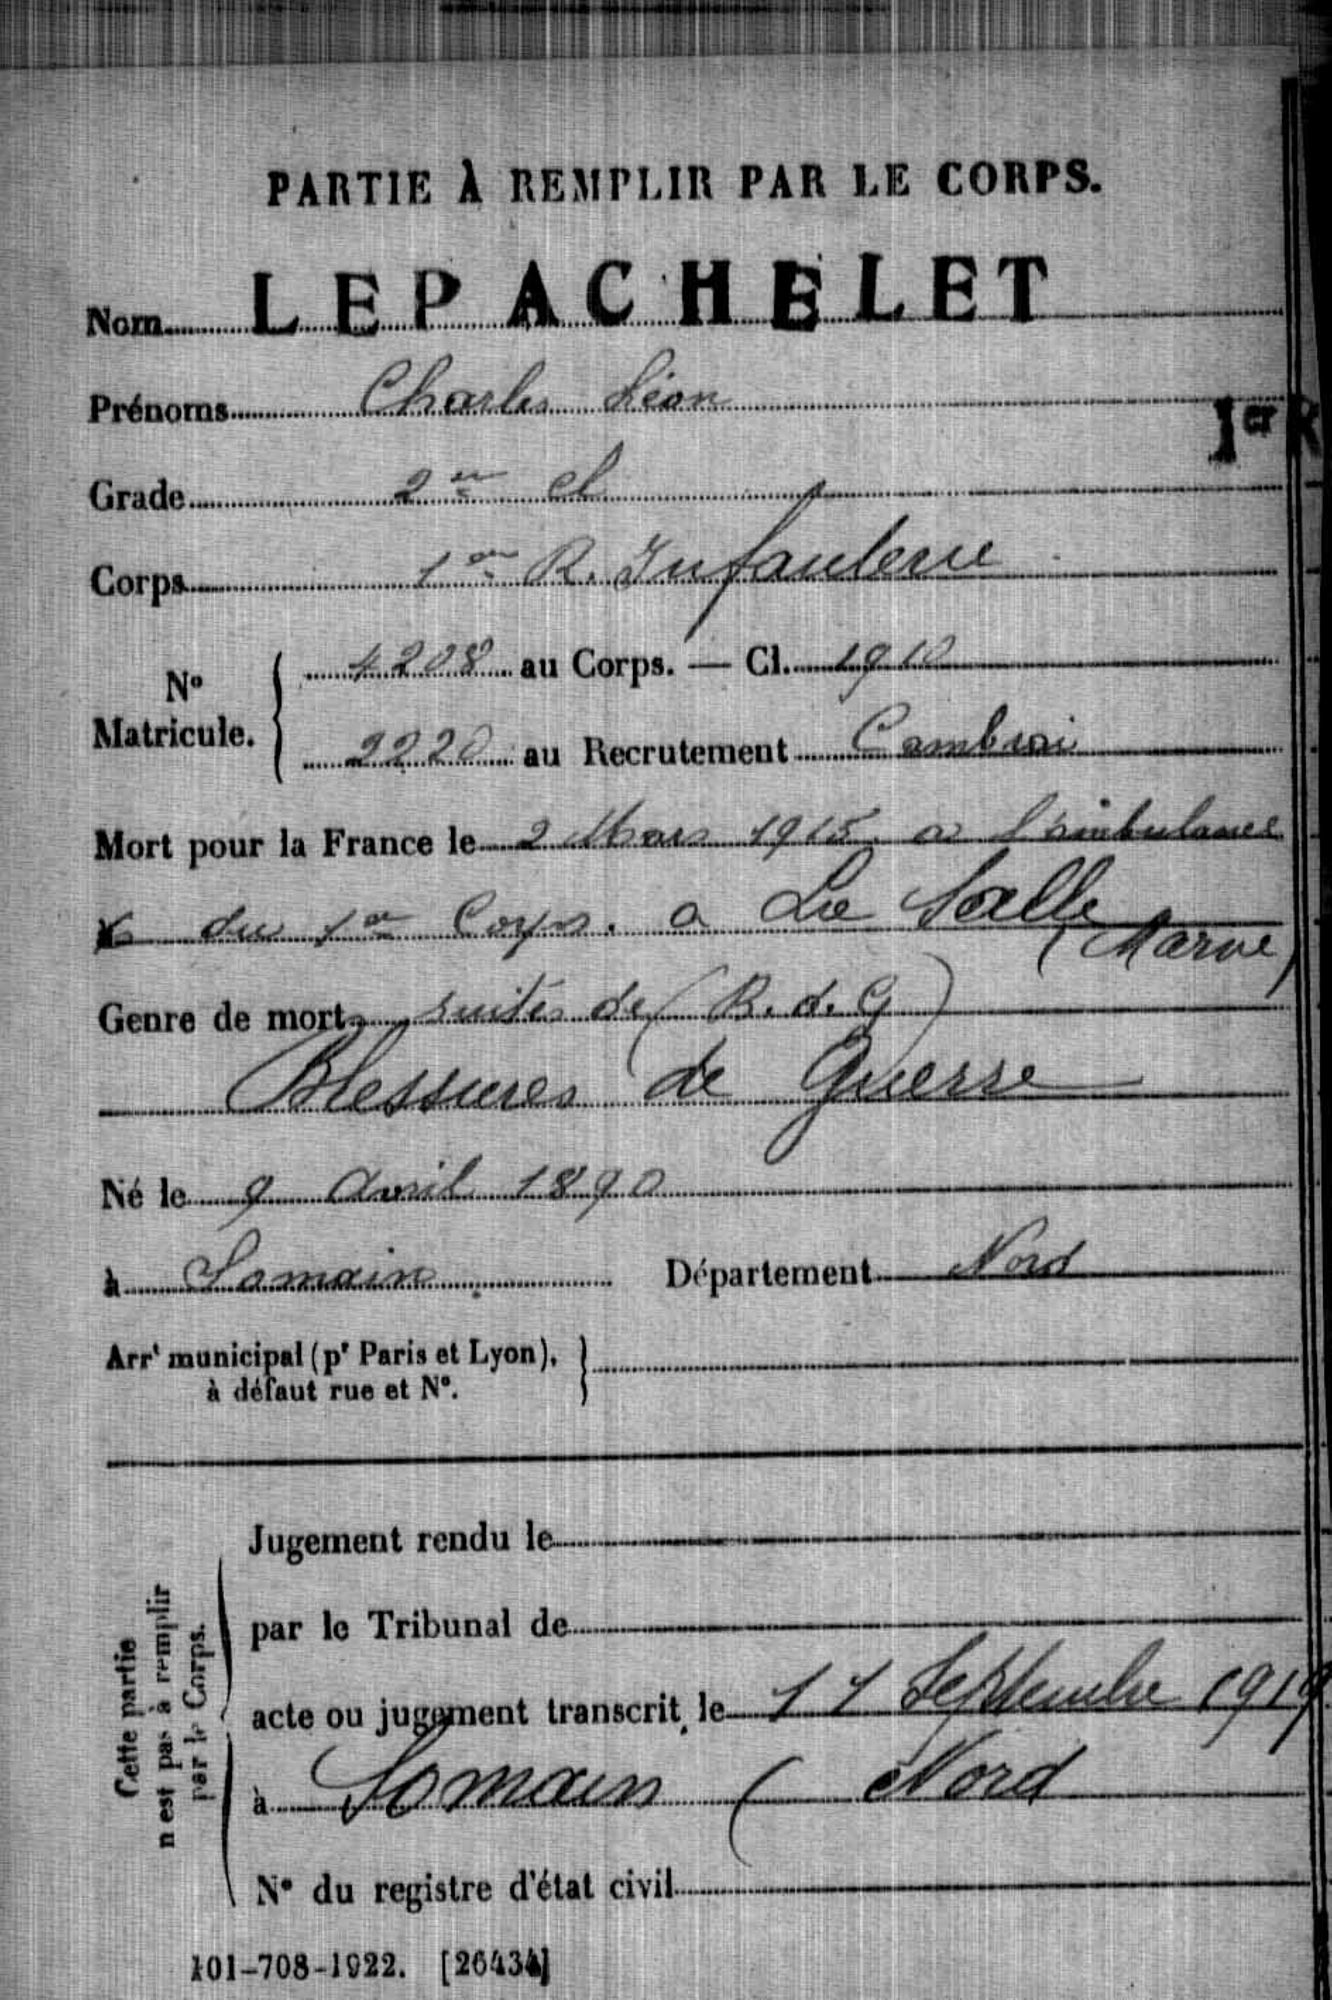 PARTIE À REMPLIR PAR LE CORPS.
Nom LEPACHELET
Prénoms Charles Léon
1er R
Grade 2e cl
Corps 1er R. Infanterie
N° Matricule. 4208 au Corps. — Cl. 1910
2220 au Recrutement Cambrai
Mort pour la France le 2 Mars 1915 a l'ambulance
du 1er Corps. a La Salle
(Marne)
Genre de mort suites de (B. d. G)
Blessures de Guerre
Né le 9 Avril 1890
à Somain Département Nord
Arrt municipal (pr Paris et Lyon),
à défaut rue et N°.
Cette partie
n'est pas à remplir
par le Corps.
Jugement rendu le
par le Tribunal de
acte ou jugement transcrit le 11 Septembre 1919
à Somain (Nord
N° du registre d'état civil
101-708-1922. [26434]